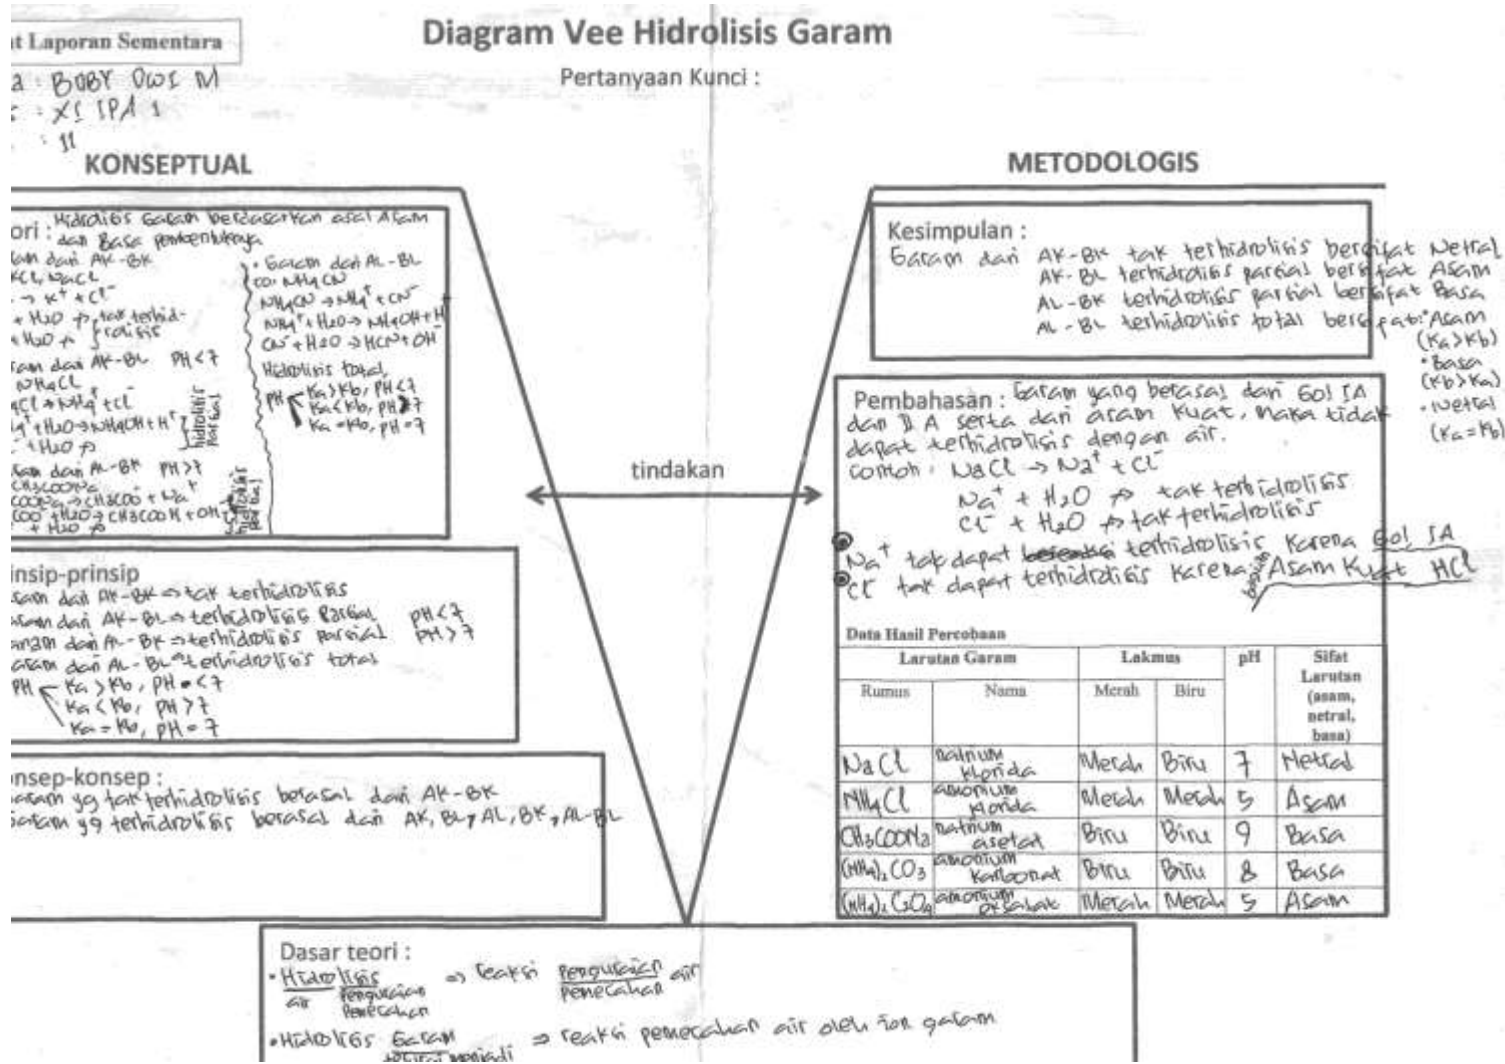 t Laporan Sementara
a : BOBY DWI M
: XI IPA 1
: 11
Diagram Vee Hidrolisis Garam
Pertanyaan Kunci :
KONSEPTUAL
ori : Hidrolisis Garam berdasarkan asal Asam
dan Basa pembentuknya
am dari AK-BK
KCl, NaCl
→ K⁺ + Cl⁻
+ H₂O ↛ tak terhid-
+ H₂O ↛ rolisis
ram dari AK-BL PH < 7
NH4Cl
4Cl → NH4⁺ + Cl⁻
4⁺ + H2O → NH4OH + H⁺
+ H2O ↛
hidrolisis
parsial
ram dari AL-BK PH > 7
CH3COONa
COONa → CH3COO⁻ + Na⁺
COO⁻ + H2O → CH3COOH + OH⁻
+ H2O ↛
hidrolisis
parsial
• Garam dari AL-BL
co: NH4CN
NH4CN → NH4⁺ + CN⁻
NH4⁺ + H2O → NH4OH + H
CN⁻ + H2O → HCN + OH
Hidrolisis total,
PH Ka > Kb, PH < 7
Ka < Kb, PH > 7
Ka = Kb, PH = 7
insip-prinsip
aram dari AK-BK ⇒ tak terhidrolisis
aram dari AK-BL ⇒ terhidrolisis Parsial PH < 7
aram dari AL-BK ⇒ terhidrolisis parsial PH > 7
aram dari AL-BL ⇒ terhidrolisis total
PH Ka > Kb, PH < 7
Ka < Kb, PH > 7
Ka = Kb, PH = 7
onsep-konsep :
aram yg tak terhidrolisis berasal dari AK-BK
aram yg terhidrolisis berasal dari AK, BL, AL, BK, AL-BL
tindakan
METODOLOGIS
Kesimpulan :
Garam dari AK-BK tak terhidrolisis bersifat Netral
AK-BL terhidrolisis parsial bersifat Asam
AL-BK terhidrolisis parsial bersifat Basa
AL-BL terhidrolisis total bersifat: • Asam
(Ka > Kb)
• Basa
(Kb > Ka)
• Netral
(Ka = Kb)
Pembahasan : Garam yang berasal dari Gol IA
dan II A serta dari asam kuat, maka tidak
dapat terhidrolisis dengan air.
contoh : NaCl → Na⁺ + Cl⁻
Na⁺ + H₂O ↛ tak terhidrolisis
Cl⁻ + H₂O ↛ tak terhidrolisis
Na⁺ tak dapat terhidrolisis karena Gol IA
Cl⁻ tak dapat terhidrolisis karena bagian Asam Kuat HCl
Data Hasil Percobaan
Larutan Garam Lakmus pH Sifat Larutan (asam, netral, basa)
Rumus Nama Merah Biru
NaCl natrium klorida Merah Biru 7 Netral
NH4Cl amonium klorida Merah Merah 5 Asam
CH3COONa natrium asetat Biru Biru 9 Basa
(NH4)2CO3 amonium karbonat Biru Biru 8 Basa
(NH4)2C2O4 amonium oksalat Merah Merah 5 Asam
Dasar teori :
• Hidrolisis ⇒ reaksi penguraian air
air penguraian pemecahan
pemecahan
• Hidrolisis Garam ⇒ reaksi pemecahan air oleh ion garam
terurai menjadi